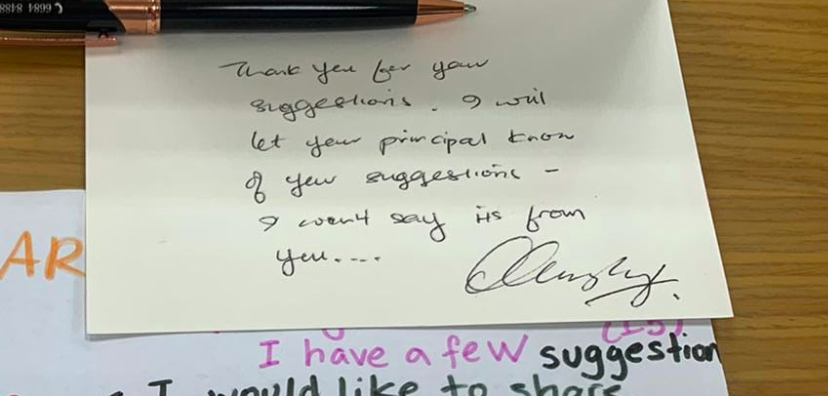 Thank you for your
suggestions. I will
let your principal know
of your suggestions -
I won't say its from
you....
AR
(15)
I have a few suggestion
I would like to share